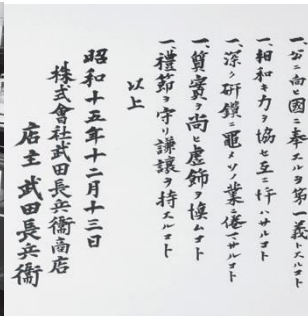 一、公ニ向ヒ國ニ奉スルヲ第一義トスルコト
一、相和キ力ヲ協セ互ニ忤ハサルコト
一、深ク研鑽ニ黽メソノ業ニ倦マサルコト
一、質實ヲ尚ヒ虚飾ヲ慎ムコト
一、禮節ヲ守リ謙譲ヲ持スルコト
以上
昭和十五年十二月十三日
株式會社武田長兵衞商店
店主 武田長兵衞